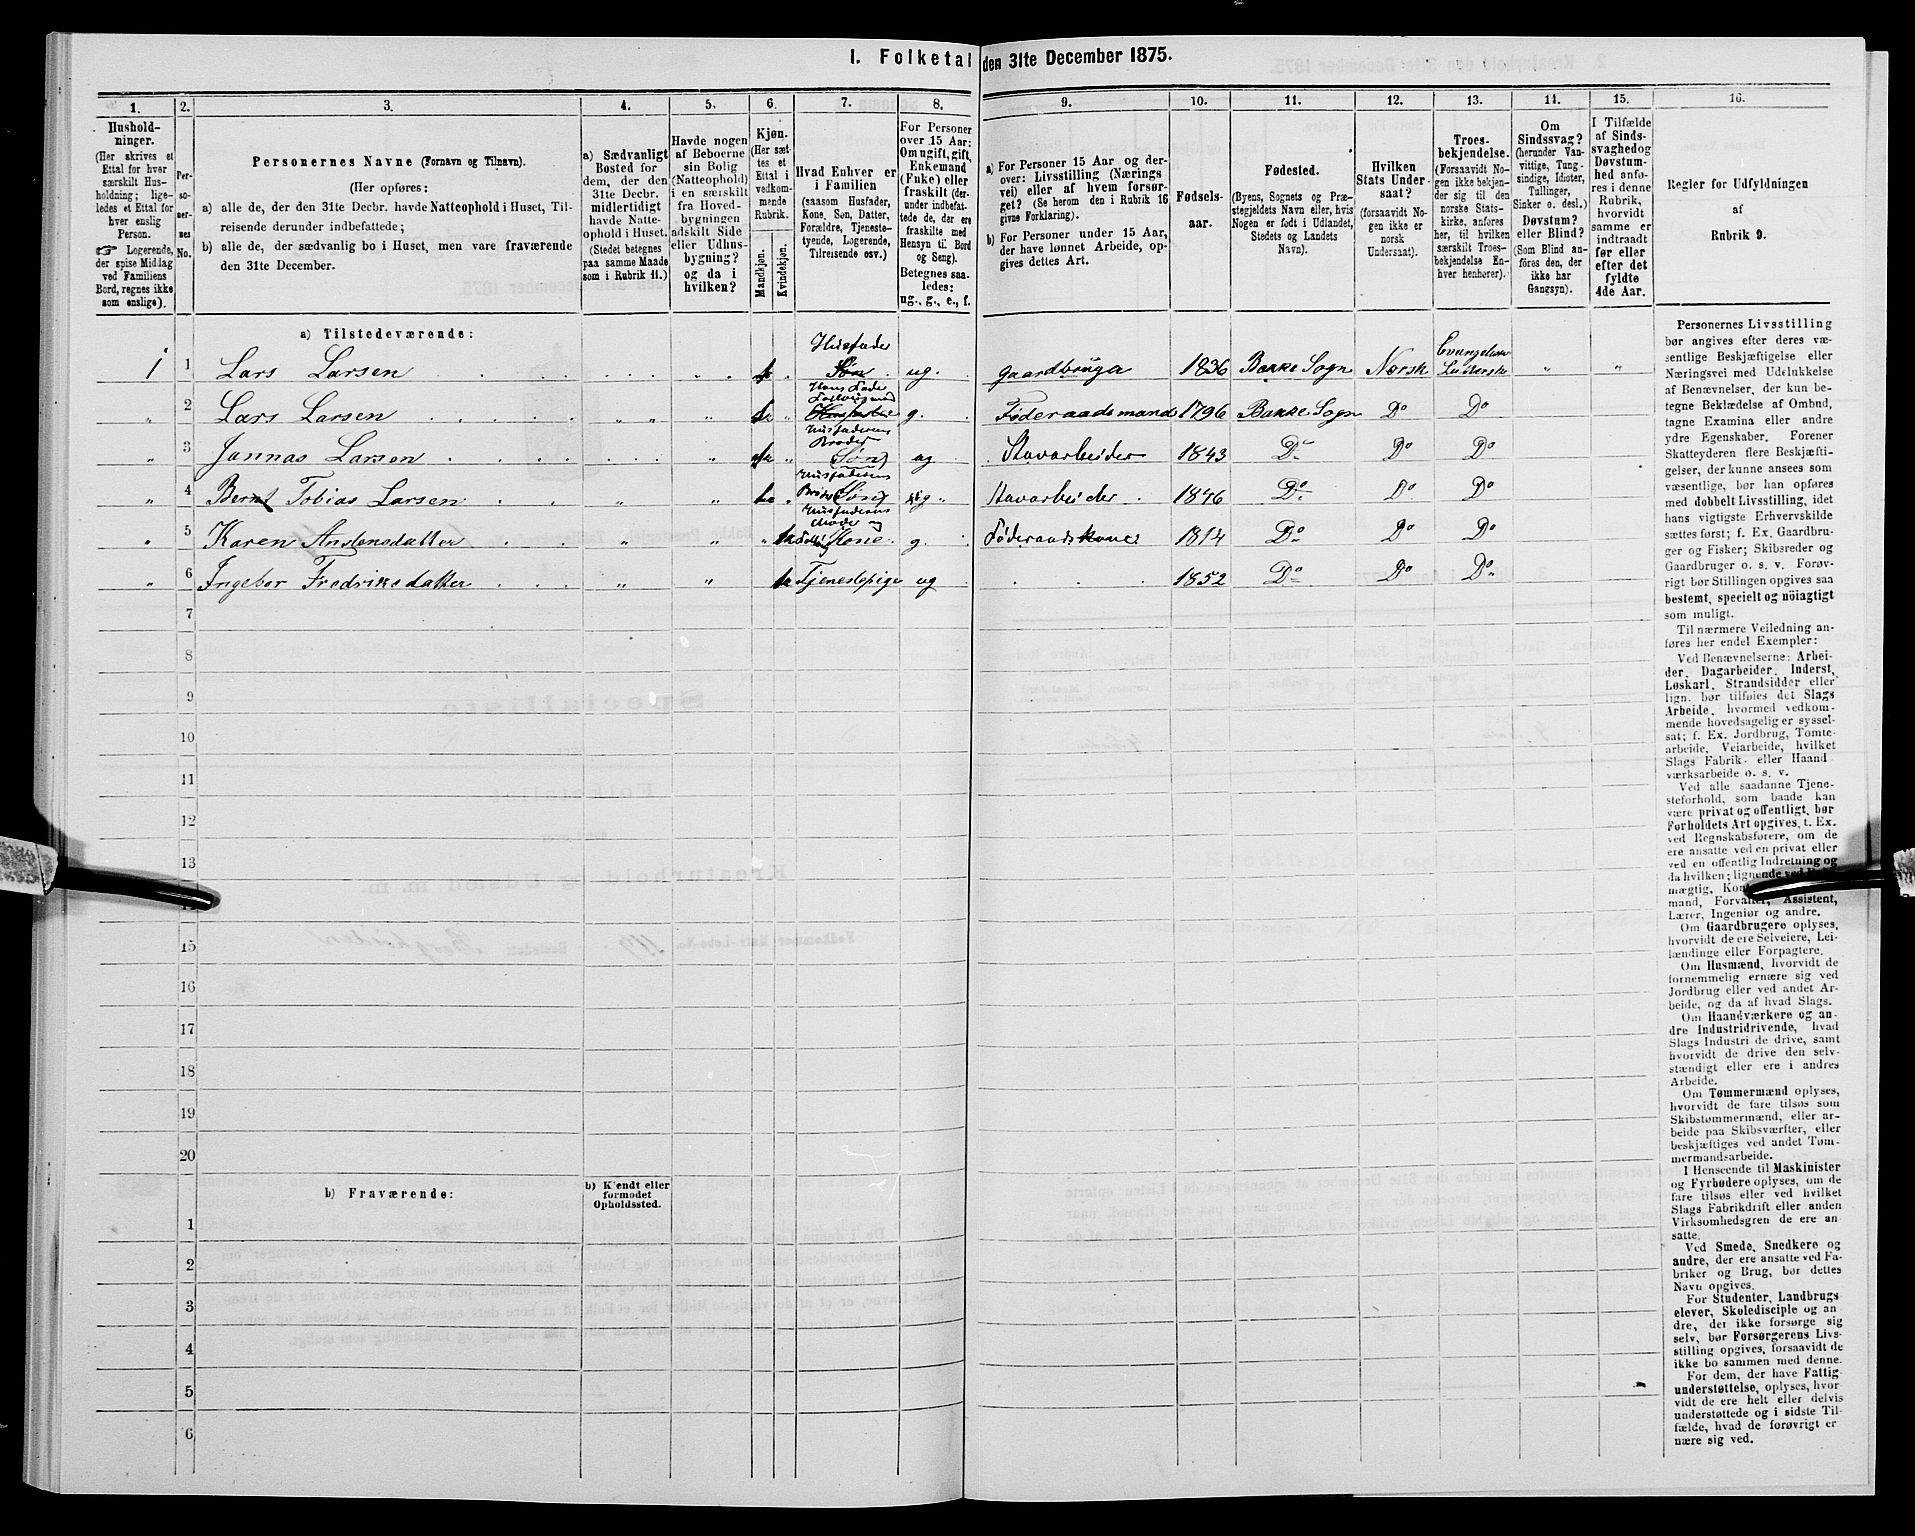 I. Folketal den 31te December 1875.
1. 2. 3. 4. 5. 6. 7. 8. 9. 10. 11. 12. 13. 14. 15. 16.
Hushold-
ninger.
(Her skrives et
Ettal for hver
særskilt Hus-
holdning; lige-
ledes et Ettal for
hver enslig
Person.
☞ Logerende,
der spise Middag
ved Familiens
Bord, regnes ikke
som enslige).
Per-
so-
ner-
nes
No.
Personernes Navne (Fornavn og Tilnavn).
(Her opføres:
a) alle de, der den 31te Decbr. havde Natteophold i Huset, Til-
reisende derunder indbefattede;
b) alle de, der sædvanlig bo i Huset, men vare fraværende
den 31te December.
a) Sædvanligt
Bosted for
dem, der den
31te Decbr.
midlertidigt
havde Natte-
ophold i Huset.
(Stedet betegnes
paa samme Maade
som i Rubrik 11.)
Havde nogen
af Beboerne
sin Bolig
(Natteophold)
i en særskilt
fra Hoved-
bygningen
adskilt Side
eller Udhus-
bygning?
og da i
hvilken?
Kjøn.
(Her sæt-
tes et
Ettal i
vedkom-
mende
Rubrik.
Mandkjøn.
Kvindekjøn.
Hvad Enhver er
i Familien
(saasom Husfader,
Kone, Søn, Datter,
Forældre, Tjeneste-
tyende, Logerende,
Tilreisende osv.)
For Personer
over 15 Aar:
Om ugift, gift,
Enkemand
(Enke) eller
fraskilt (der-
under indbefat-
tede de, der ere
fraskilte med
Hensyn til Bord
og Seng).
Betegnes saa-
ledes:
ug., g., e., f.
a) For Personer 15 Aar og der-
over: Livsstilling (Nærings
vei) eller af hvem forsør-
get? (Se herom den i Rubrik 16
givne Forklaring).
b) For Personer under 15 Aar,
der have lønnet Arbeide, op-
gives dettes Art.
Fødsels-
aar.
Fødested.
(Byens, Sognets og Præ-
stegjeldets Navn eller, hvis
Nogen er født i Udlandet,
Stedets og Landets
Navn).
Hvilken
Stats Under-
saat?
(forsaavidt No-
gen ikke er
norsk
Undersaat).
Troes-
bekjendelse.
(Forsaavidt No-
gen ikke bekjen-
der sig til den
norske Stats-
kirke, anføres
her, til hvilken
særskilt Troes-
bekjendelse En-
hver henhører).
Om
Sindssvag?
(herunder Van-
vittige, Tung-
sindige, Idioter,
Tullinger,
Sinker o. desl.)
Døvstum?
eller Blind?
(Som Blind an-
føres den, der
ikke har
Gangsyn).
I Tilfælde
af Sinds-
svaghed og
Døvstum-
hed anfø-
res i denne
Rubrik,
hvorvidt
samme er
indtraadt
før eller
efter det
fyldte
4de Aar.
Regler for Udfyldningen
af
Rubrik 9.
a) Tilstedeværende:
1 1 Lars Larsen Husfader Søn ug. Gaardbruger 1836 Bakke Sogn Norsk Evangelisk Luthersk
" 2 Lars Larsen g. Føderaadsmand 1796 Bakke Sogn Do Do
" 3 Jannas Larsen Husfaderens Broder Søn ug Stavarbeider 1843 Do Do Do
" 4 Bernt Tobias Larsen Husfaderens Broder Søn ug Stavarbeider 1846 Do Do Do
" 5 Karen Andensdatter Husfaderens Moder og Kone g. Føderaadskone 1814 Do Do Do
" 6 Ingebor Fredriksdatter Tjenestepige ug 1852 Do Do Do
7
8
9
10
11
12
13
15
16
17
18
19
20
b) Fraværende:
b) Kjendt eller
formodet
Opholdssted.
1
2
3
4
5
6
Personernes Livsstilling
bør angives efter deres væ-
sentlige Beskjæftigelse eller
Næringsvei med Udelukkelse
af Benævnelser, der kun be-
tegne Beklædelse af Ombud,
tagne Examina eller andre
ydre Egenskaber. Forener
Skatteyderen flere Beskjæfti-
gelser, der kunne ansees som
væsentlige, bør han opføres
med dobbelt Livsstilling, idet
hans vigtigste Erhvervskilde
sættes først; f. Ex. Gaardbru-
ger og Fisker; Skibsreder og
Gaardbruger o. s. v. Forøv-
rigt bør Stillingen opgives saa
bestemt, specielt og nöiagtigt
som muligt.
Til nærmere Veiledning an-
føres her endel Exempler:
Ved Benævnelserne: Arbei-
der, Dagarbeider, Inderst,
Løskarl, Strandsidder eller
lign. bør tilføies det Slags
Arbeide, hvormed vedkom-
mende hovedsagelig er syssel-
sat; f. Ex. Jordbrug, Tomte-
arbeide, Veiarbeide, hvilket
Slags Fabrik- eller Haand
værksarbeide o. s. v.
Ved alle saadanne Tjene-
steforhold, som baade kan
være privat og offentligt, bør
Forholdets Art opgives, t. Ex.
ved Regnskabsførere, om de
ere ansatte ved en privat eller
ved en offentlig Indretning og
da hvilken; lignende ved
mægtig,
mand, Forvalter, Assistent,
Lærer, Ingeniør og andre.
Om Gaardbrugere oplyses,
hvorvidt de ere Selveiere, Lei-
lændinge eller Forpagtere.
Om Husmænd, hvorvidt de
fornemmelig ernære sig ved
Jordbrug eller ved andet Ar-
beide, og da af hvad Slags.
Om Haandværkere og an-
dre Industridrivende, hvad
Slags Industri de drive, samt
hvorvidt de drive den selv-
stændigt eller ere i andres
Arbeide.
Om Tømmermænd oplyses,
hvorvidt de fare tilsøs som
Skibstømmermænd, eller ar-
beide paa Skibsværfter, eller
beskjæftiges ved andet Tøm-
mermandsarbeide.
I Henseende til Maskinister
og Fyrbødere oplyses, om de
fare tilsøs eller ved hvilket
Slags Fabrikdrift eller anden
Virksomhedsgren de ere an-
satte.
Ved Smede, Snedkere og
andre, der ere ansatte ved Fa-
briker og Brug, bør dettes
Navn opgives.
For Studenter, Landbrugs
elever, Skoledisciple og an
dre, der ikke forsørge sig
selv, bør Forsørgerens Livs-
stilling opgives, forsaavidt de
ikke bo sammen med denne.
For dem, der have Fattig-
understøttelse, oplyses, hvor-
vidt de ere helt eller delvis
understøttede og i sidste Til-
fælde, hvad de forøvrigt er
nære sig ved.